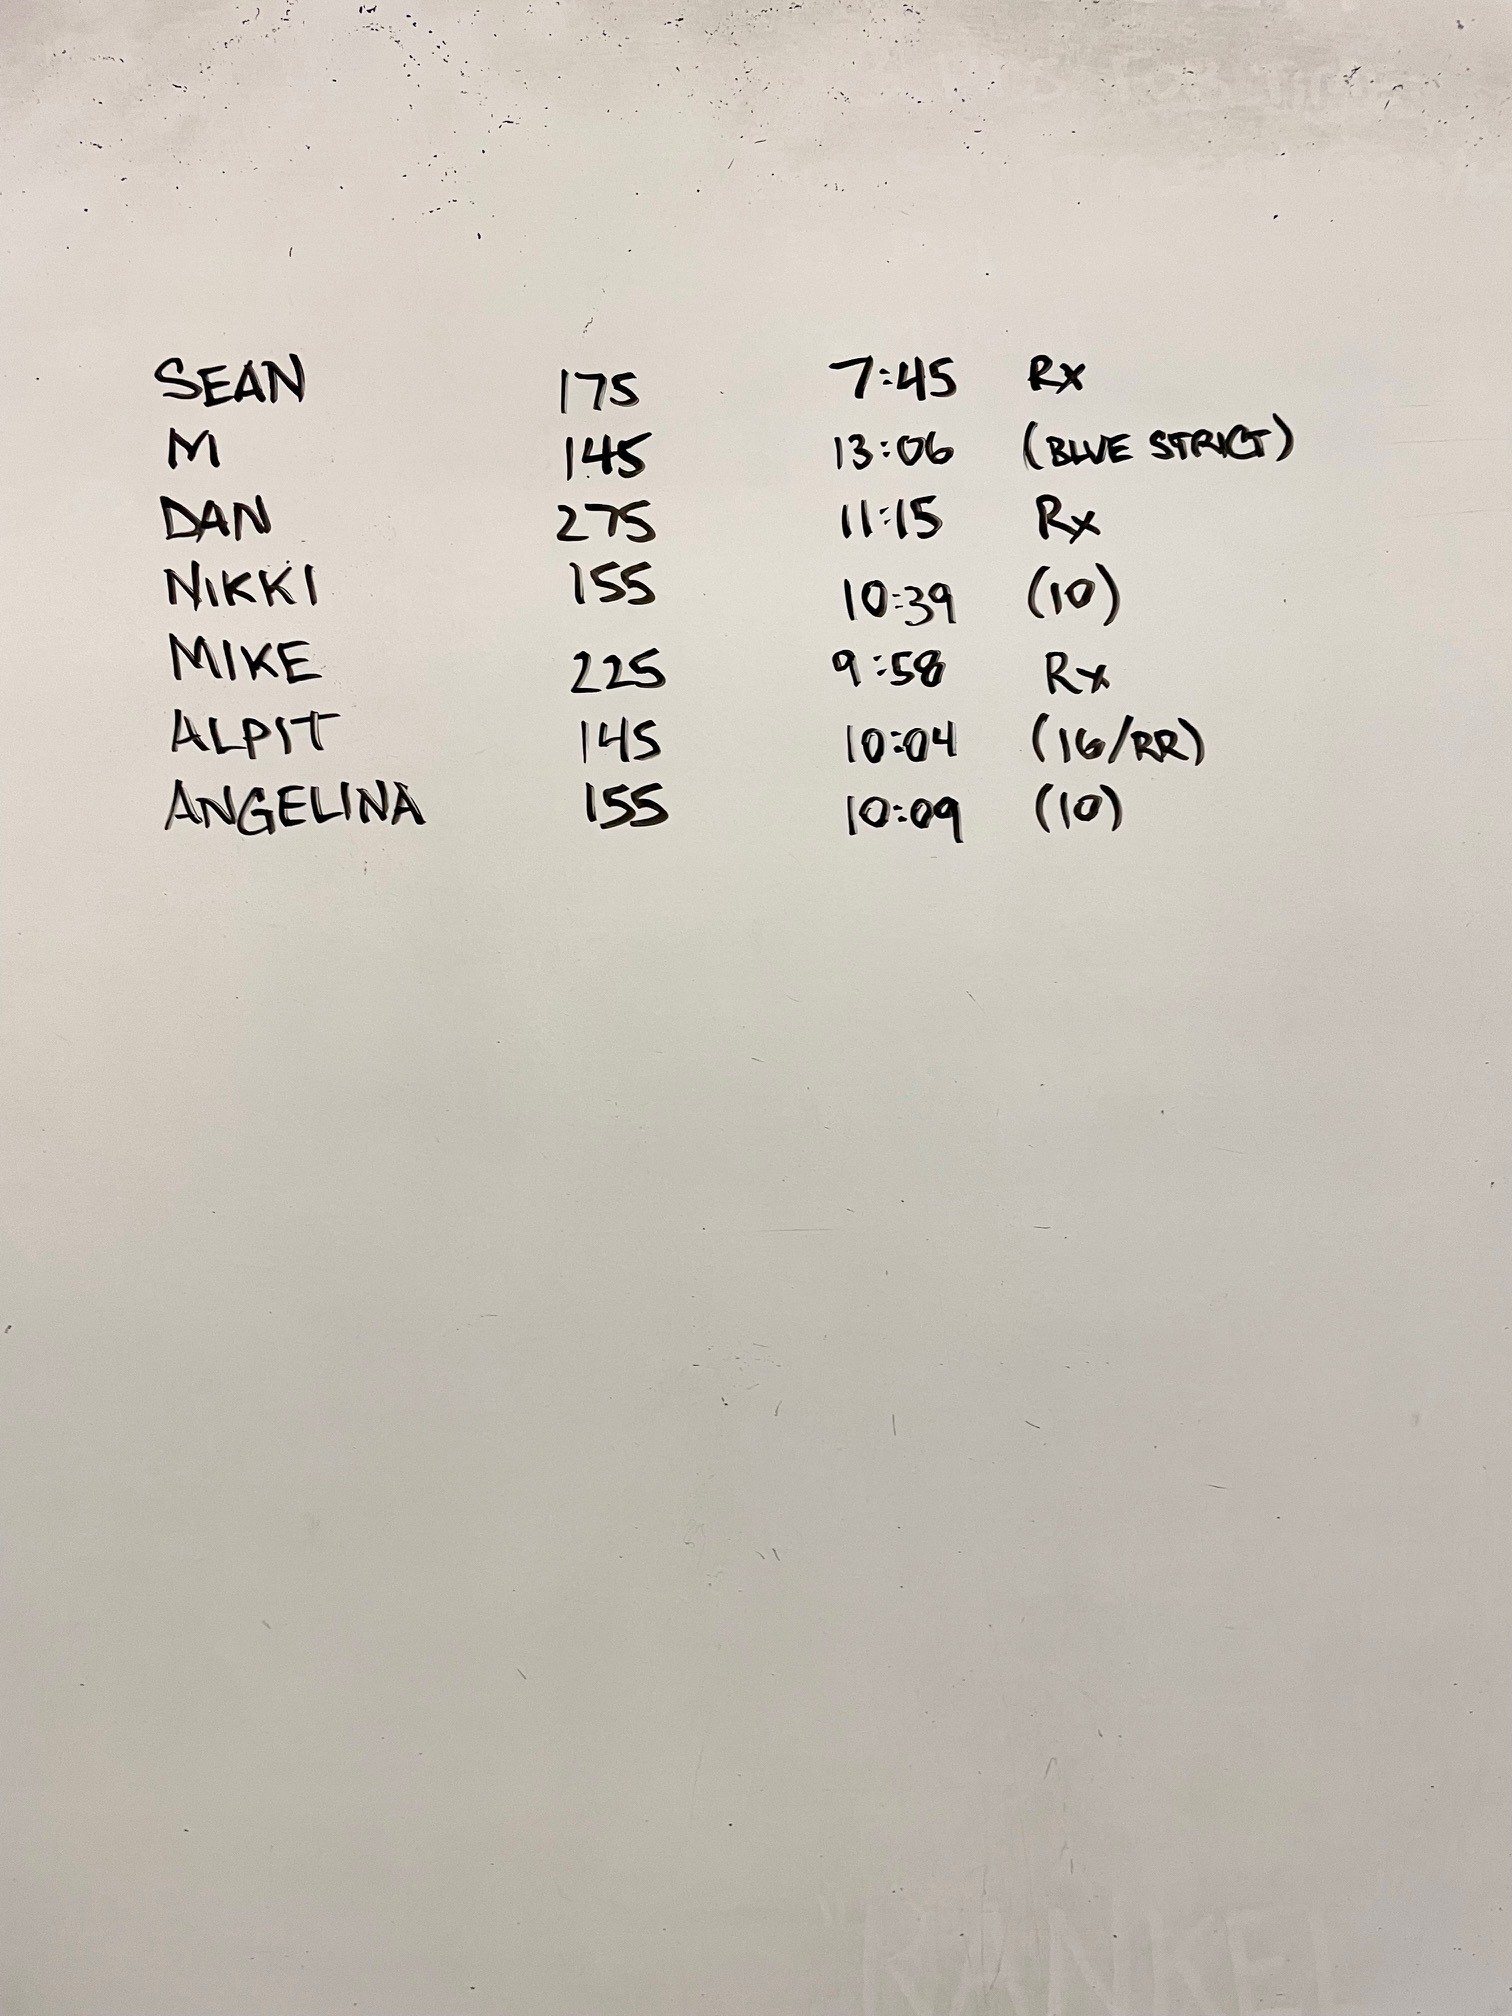 SEAN 175 7:45 Rx
M 145 13:06 (BLUE STRICT)
DAN 275 11:15 Rx
NIKKI 155 10:39 (10)
MIKE 225 9:58 Rx
ALPIT 145 10:04 (16/RR)
ANGELINA 155 10:09 (10)